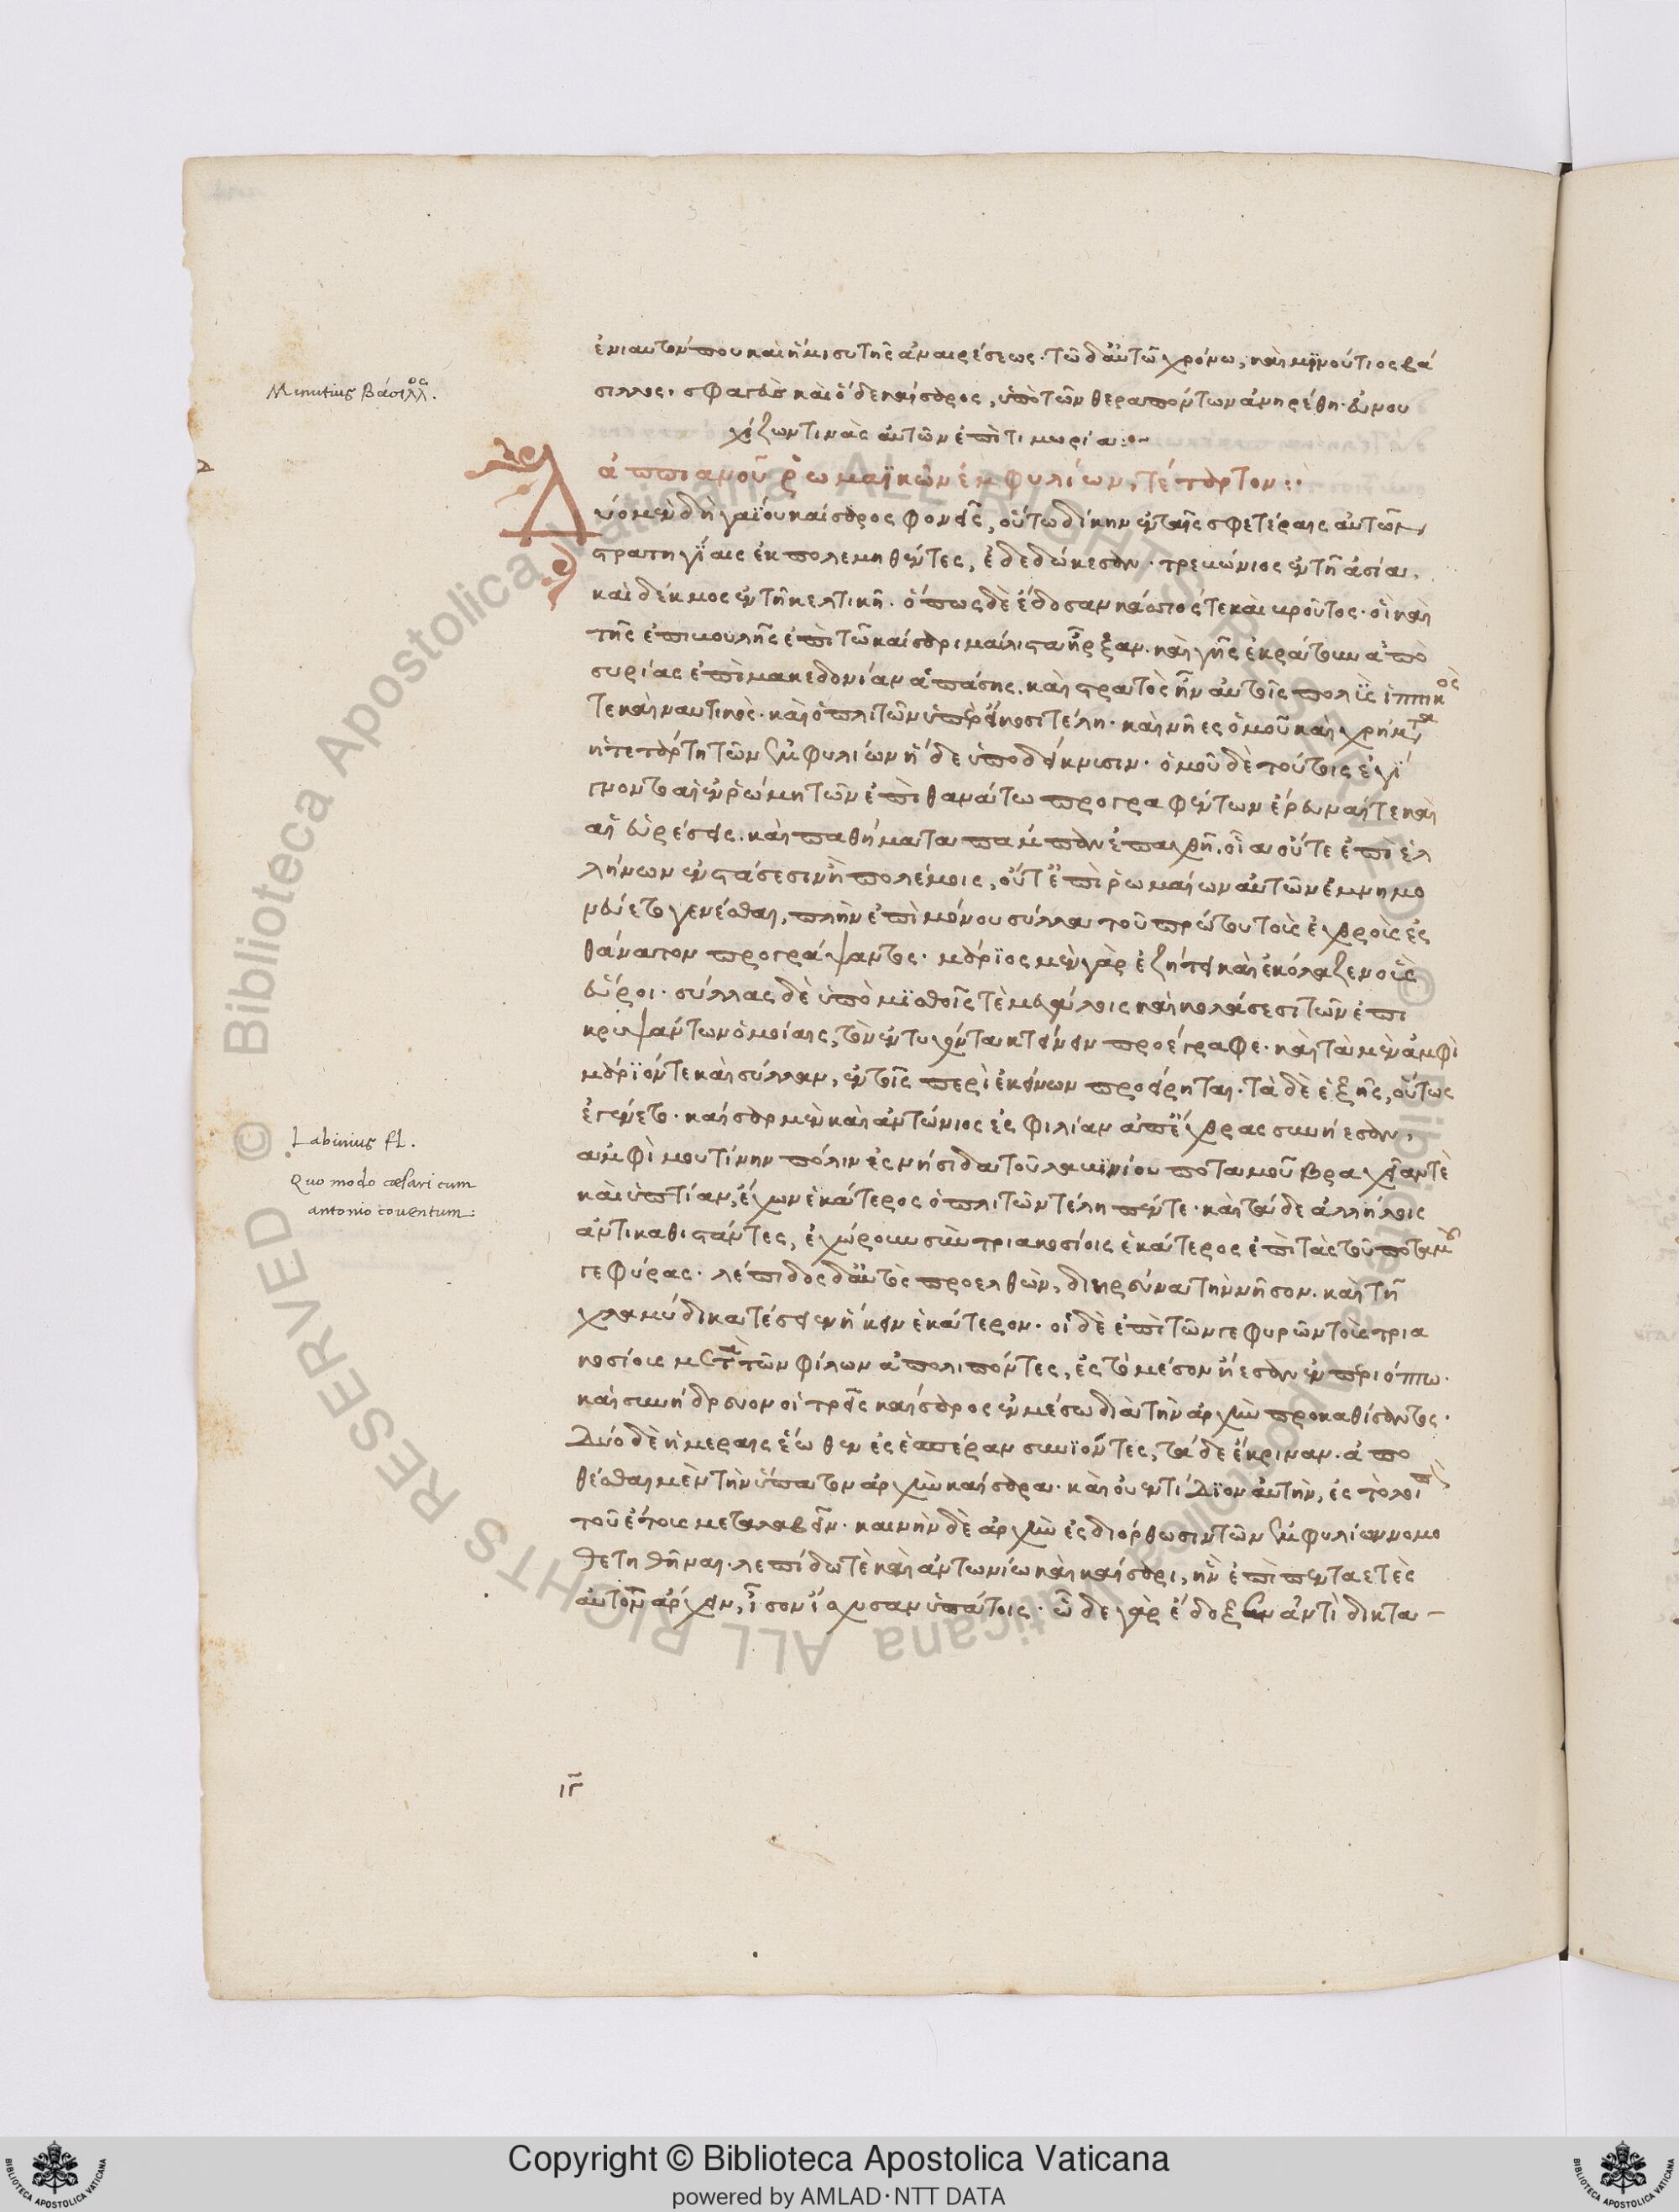 ἐνιαυτόν που καὶ ἥμισυ τῆς ἀναιρέσεως· τῶ δ' αὐτῶ χρόνω, καὶ μινούτιος βά
Minutius Βάσιλλος.
σιλλος, σφαγεὺς καὶ ὅδε καίσαρος, ὑπὸ τῶν θεραπόντων ἀνηρέθη· εὐνου
χίζων τινὰς αὐτῶν ἐπὶ τιμωρία:~
ἀππιανοῦ ῥωμαϊκῶν ἐμφυλίων, τέταρτον:·
Δύο μὲν δὴ γαΐου καίσαρος φονεῖς, οὕτω δίκην ἐν ταῖς σφετέραις αὐτῶν
στρατηγίαις ἐκπολεμηθέντες, ἐδεδώκεσαν· τρεβώνιος ἐν τῆ ἀσία,
καὶ δέκμος ἐν τῆ κελτικῆ. ὅπως δὲ ἔδοσαν κάσσιός τε καὶ βροῦτος· οἳ καὶ
τῆς ἐπιβουλῆς ἐπὶ τῶ καίσαρι μάλιστα ἦρξαν. καὶ γῆς ἐκράτουν ἀπὸ
συρίας ἐπὶ μακεδονίαν ἁπάσης. καὶ στρατὸς ἦν αὐτοῖς πολὺς ἱππικὸς
τε καὶ ναυτικὸς· καὶ ὁπλιτῶν ὑπὲρ εἴκοσι τέλη· καὶ νῆες ὁμοῦ καὶ χρήματα
ἡ τετάρτη τῶν ἐμφυλίων ἥδε ὑποδείκνυσιν· ὁμοῦ δὲ τούτοις ἐγί
γνοντο αἱ ἐν ῥώμη τῶν ἐπὶ θανάτω προγραφέντων ἔρευναί τε καὶ
αἱ εὑρέσεις. καὶ παθήματα πάμπαν ἐπαχθῆ. οἷα οὔτε ἐπὶ ἑλ
λήνων ἐν στάσεσιν ἢ πολέμοις, οὔτ' ἐπὶ ῥωμαίων αὐτῶν ἐμνημο
νεύετο γενέσθαι, πλὴν ἐπὶ μόνου σύλλα τοῦ πρώτου τοὺς ἐχθροὺς ἐς
θάνατον προγράψαντος· μάριος μὲν γὰρ ἐζήτει καὶ ἐκόλαζεν οὓς
εὕροι· σύλλας δὲ ὑπὸ μισθοῖς τὲ μεγάλοις καὶ κολάσεσι τῶν ἐπι
κρυψάντων ὁμοίαις, τὸν ἐντυχόντα κτείνειν προέγραφε· καὶ τὰ μὲν ἀμφὶ
μάριόν τε καὶ σύλλαν, ἐν τοῖς περὶ ἐκείνων προείρηται. τὰ δὲ ἑξῆς, οὕτως
ἐγένετο· καίσαρ μὲν καὶ ἀντώνιος ἐς φιλίαν ἀπ' ἔχθρας συνήεσαν,
Labinius fl.
ἀμφὶ μουτίνην πόλιν ἐς νησίδα τοῦ λαβινίου ποταμοῦ βραχεῖαν τὲ
Quo modo cæsari cum
antonio conventum:
καὶ ὑπτίαν, ἔχων ἑκάτερος ὁπλιτῶν τέλη πέντε· καὶ τάδε ἀλλήλοις
ἀντικαθιστάντες, ἐχώρουν σὺν τριακοσίοις ἑκάτερος ἐπὶ τὰς τοῦ ποταμοῦ
γεφύρας· λέπιδος δ' αὐτὸς προελθὼν, διηρεύνα τὴν νῆσον. καὶ τῆ
χλαμύδι κατέσειεν ἥκειν ἑκάτερον· οἱ δὲ ἐπὶ τῶν γεφυρῶν τοὺς τρια
κοσίους μετὰ τῶν φίλων ἀπολιπόντες, ἐς τὸ μέσον ἤεσαν ἐν περιόπτω.
καὶ συνήδρευον οἱ τρεῖς καίσαρος ἐν μέσω διὰ τὴν ἀρχὴν προκαθίσαντος.
Δύο δὲ ἡμέραις ἕωθεν ἐς ἑσπέραν συνιόντες, τάδε ἔκριναν. ἀπο
θέσθαι μὲν τὴν ὕπατον ἀρχὴν καίσαρα· καὶ οὐεντίδιον αὐτὴν, ἐς τὸ λοιπὸν
τοῦ ἔτους μεταλαβεῖν. καινὴν δὲ ἀρχὴν ἐς διόρθωσιν τῶν ἐμφυλίων νομο
θετηθῆναι. λεπίδω τὲ καὶ ἀντωνίω καὶ καίσαρι, ἣν ἐπὶ πενταετὲς
αὐτοὺς ἄρχειν, ἴσον ἰσχύσαν ὑπάτοις. ὧδε γὰρ ἔδοξεν ἀντὶ δικτα-
ιγ
Copyright © Biblioteca Apostolica Vaticana
powered by AMLAD·NTT DATA
© Biblioteca Apostolica Vaticana ALL RIGHTS RESERVED
BIBLIOTECA APOSTOLICA VATICANA
BIBLIOTECA APOSTOLICA VATICANA